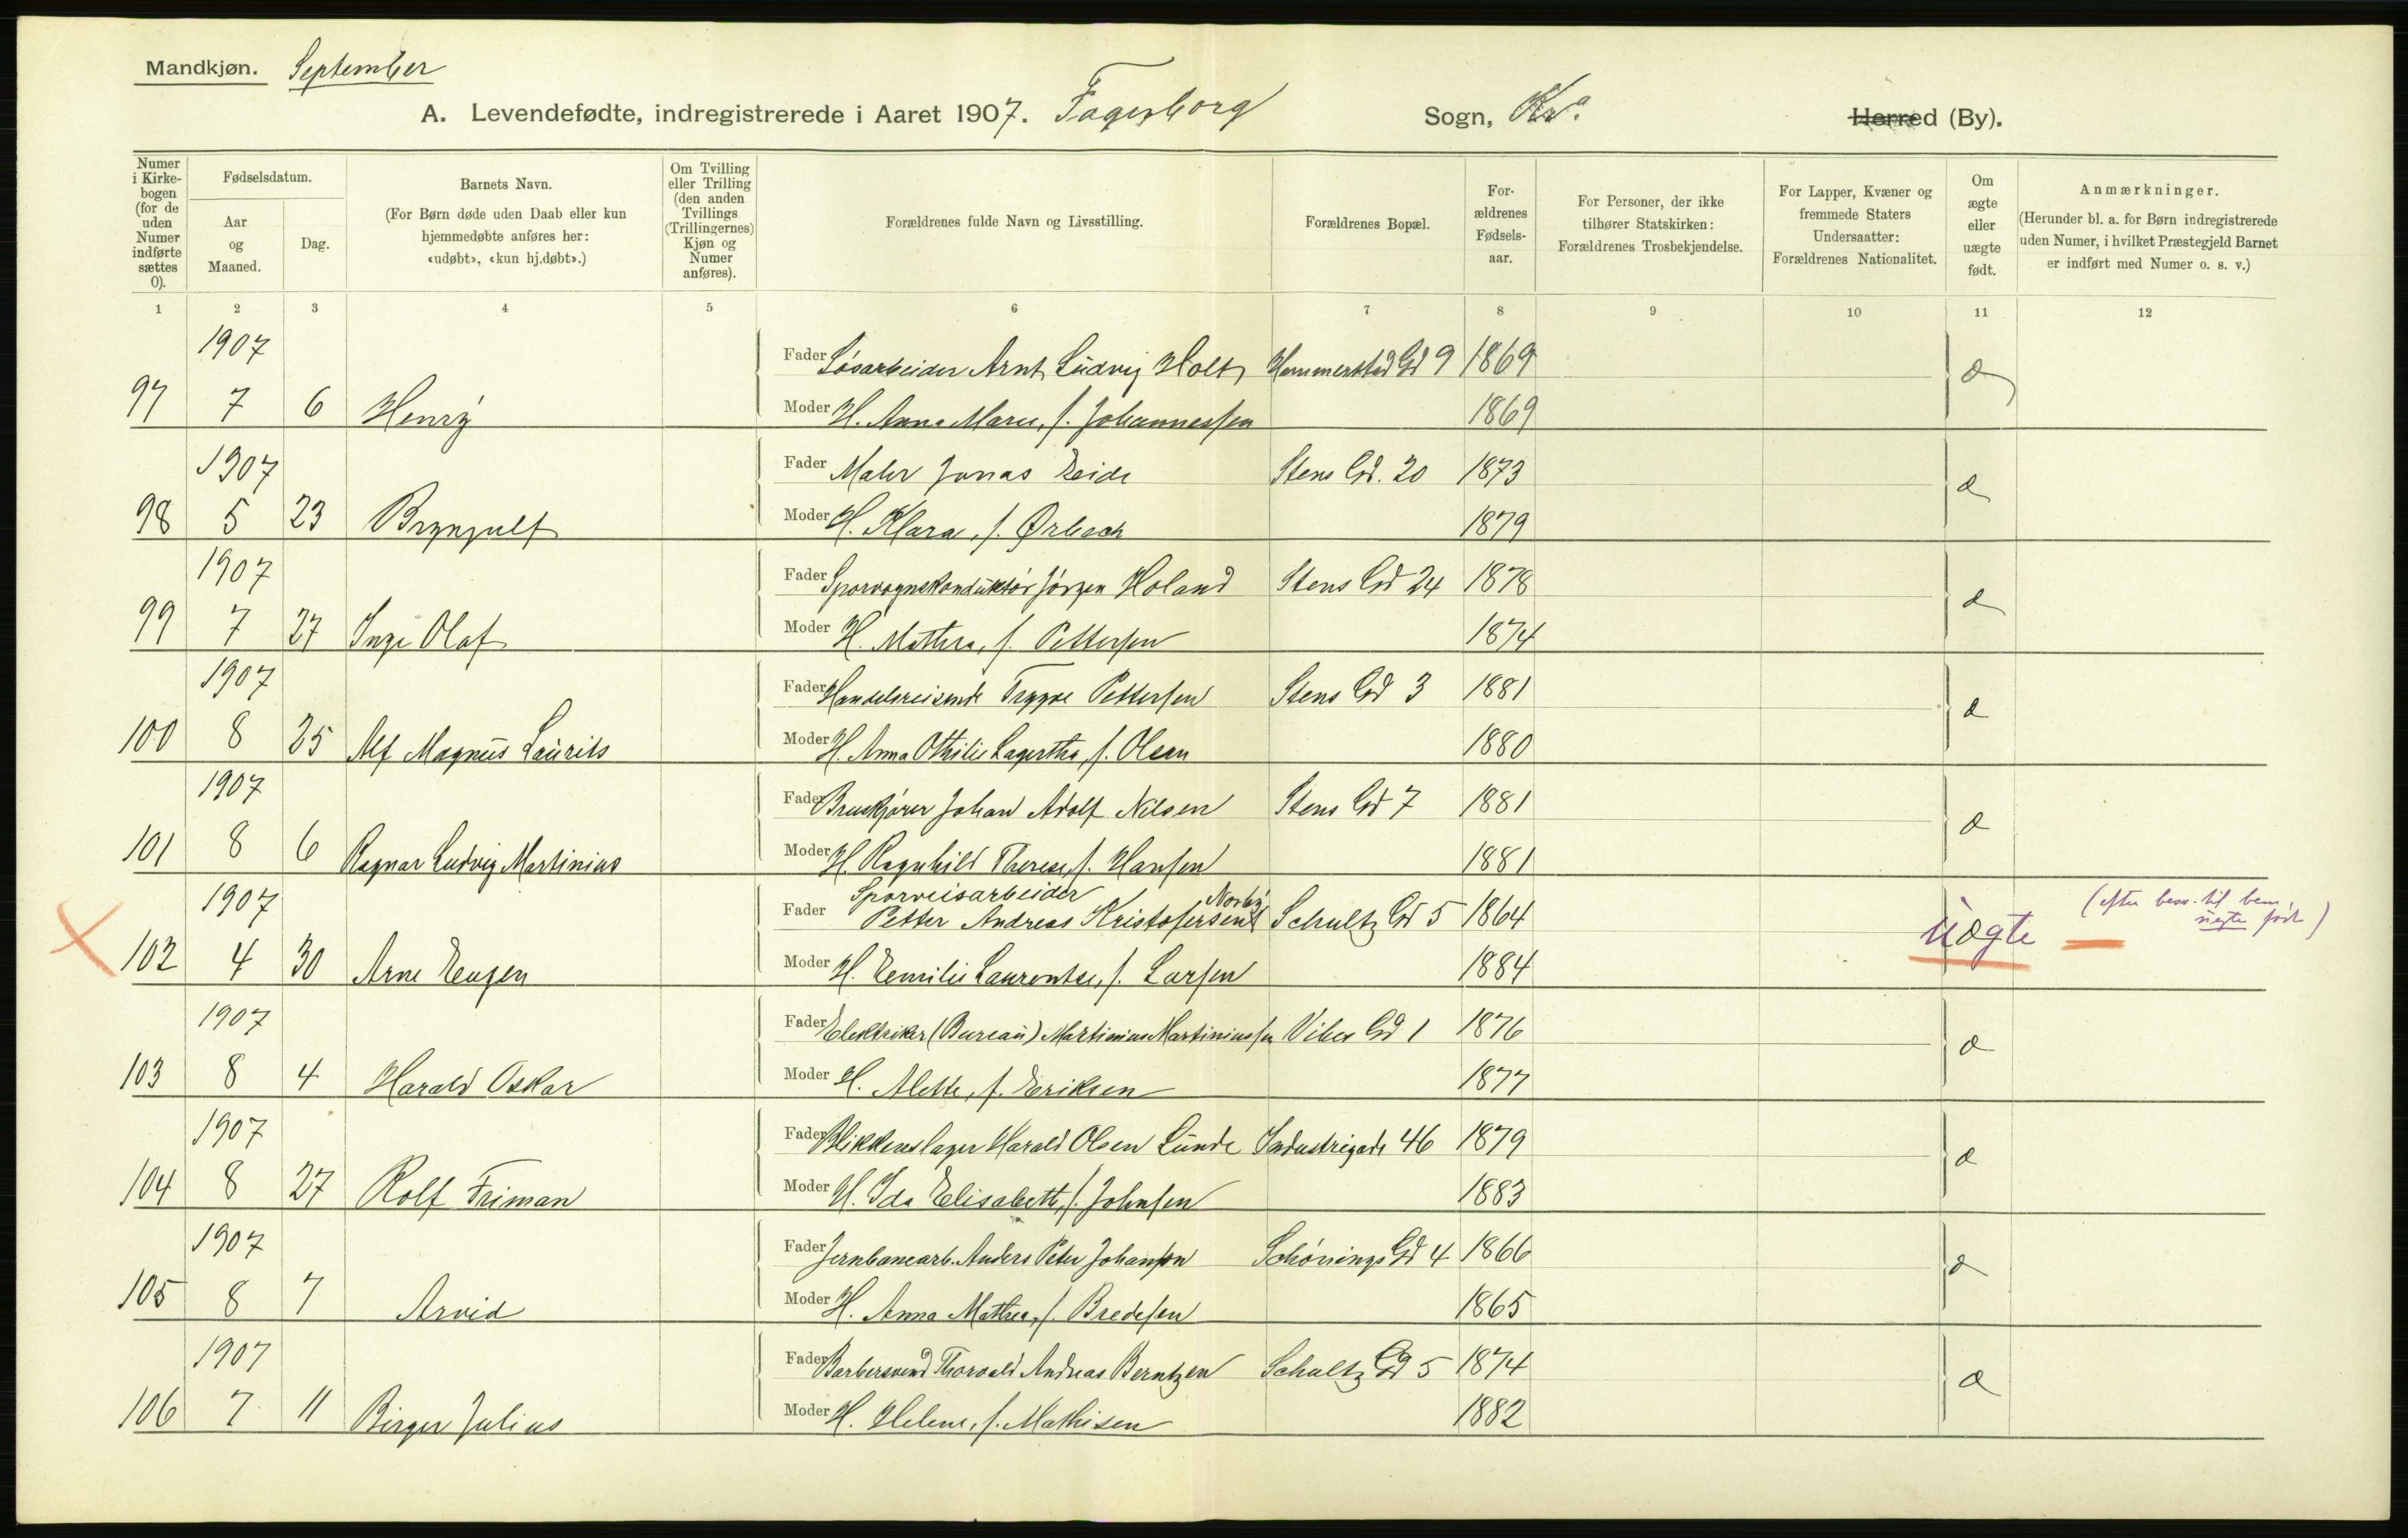 Mandkjøn. September
A. Levendefødte, indregistrerede i Aaret 1907. Fagerborg Sogn, Kra. Herred (By).
Numer i Kirkebogen (for de uden Numer indførte sættes 0).
Fødselsdatum.
Aar og Maaned.
Dag.
Barnets Navn.
(For Børn døde uden Daab eller kun hjemmedøbte anføres her: «udøbt», «kun hj.døbt».)
Om Tvilling eller Trilling (den anden Tvillings (Trillingernes) Kjøn og Numer anføres).
Forældrenes fulde Navn og Livsstilling.
Forældrenes Bopæl.
Forældrenes Fødselsaar.
For Personer, der ikke tilhører Statskirken: Forældrenes Trosbekjendelse.
For Lapper, Kvæner og fremmede Staters Undersaatter: Forældrenes Nationalitet.
Om ægte eller uægte født.
Anmærkninger.
(Herunder bl. a. for Børn indregistrerede uden Numer, i hvilket Præstegjeld Barnet er indført med Numer o. s. v.)
1 2 3 4 5 6 7 8 9 10 11 12
1907
Fader Løsarbeider Arnt Ludvig Holt Hammerstad Gd 9 1869 æ
97 7 6 Henry Moder H. Anna Marie, f. Johannessen 1869
1907
Fader Maler Jonas Eide Stens Gd. 20 1873 æ
98 5 23 Brynjulf Moder H. Klara, f. Ørbech 1879
1907
Fader Sporvognskonduktør Jørgen Holand Stens Gd 24 1878 æ
99 7 27 Inge Olaf Moder H. Mathea, f. Pettersen 1874
1907
Fader Handelsreisende Trygve Pettersen Stens Gd 3 1881 æ
100 8 25 Alf Magnus Laurits Moder H. Anna Othilie Lagertha, f. Olsen 1880
1907
Fader Bruskjører Johan Adolf Nilsen Stens Gd 7 1881 æ
101 8 6 Ragnar Ludvig Martinius Moder H. Ragnhild Therese, f. Hansen 1881
1907 Sporveisarbeider Norby
Fader Petter Andreas Kristofersen Schultz Gd 5 1864 uægte (efter besv. til bem. uegte født)
102 4 30 Arne Eugen Moder H. Emilie Laurentse, f. Larsen 1884
1907
Fader Elektriker (Bureau) Martinius Martiniussen Vibes Gd 1 1876 æ
103 8 4 Harald Oskar Moder H. Alette, f. Eriksen 1877
1907
Fader Blikkenslager Harald Olsen Lunde Industrigade 46 1879 æ
104 8 27 Rolf Friman Moder H. Ida Elisabeth, f. Johnsen 1883
1907
Fader Jernbanearb. Anders Peter Johansen Schønings Gd 4 1866 æ
105 8 7 Arvid Moder H. Anna Mathea, f. Bredesen 1865
1907
Fader Barbersvend Thorvald Andreas Berntzen Schultz Gd 5 1874 æ
106 7 11 Birger Julius Moder H. Helene, f. Mathisen 1882